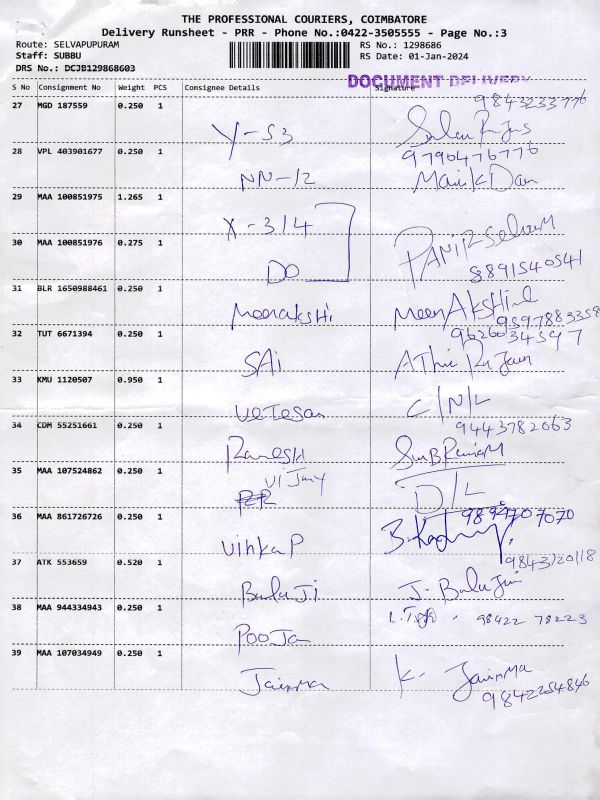 THE PROFESSIONAL COURIERS, COIMBATORE
Delivery Runsheet - PRR - Phone No.:0422-3505555 - Page No.:3
Route: SELVAPUPURAM
RS No.: 1298686
Staff: SUBBU
RS Date: 01-Jan-2024
DRS No.: DCJB129868603
DOCUMENT DELIVERY
S No Consignment No Weight PCS Consignee Details Signature
9843233776
27 MGD 187559 0.250 1
Y-53
9790476776
28 VPL 403901677 0.250 1
NN-12
29 MAA 100851975 1.265 1
X-314
30 MAA 100851976 0.275 1
DO
8891540541
31 BLR 1650988461 0.250 1
Meenakshi MeenAkshi
9597883358
32 TUT 6671394 0.250 1
9626034597
SAi
33 KMU 1120507 0.950 1
C/N/L
34 CDM 55251661 0.250 1
9443782063
Ramesh
35 MAA 107524862 0.250 1
D/L
36 MAA 861726726 0.250 1
9894707070
37 ATK 553659 0.520 1
9843120118
BaluJi J. BaluJi
38 MAA 944334943 0.250 1
98422 78223
PooJa
39 MAA 107034949 0.250 1
K.
9842254846